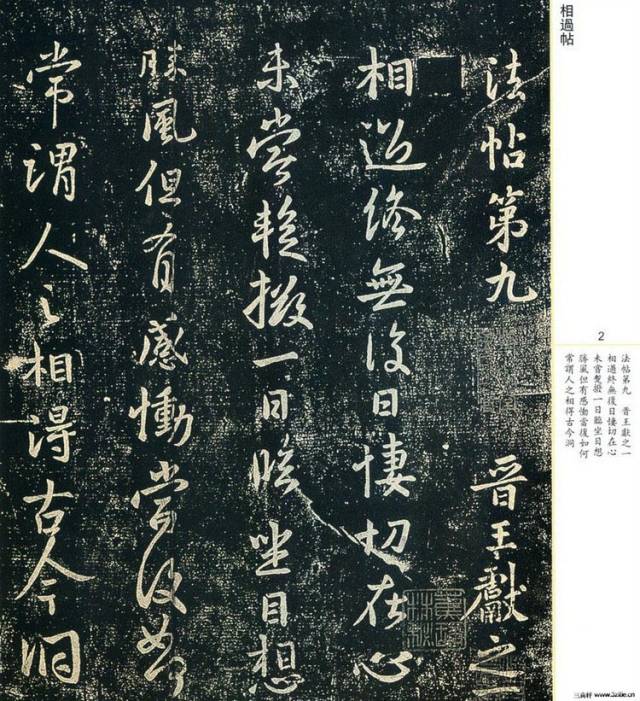 相過帖
2
法帖第九 晉王獻之一
相過終無復日悽切在心
未嘗蹔撥一日臨坐目想
勝風但有感慟當復如何
常謂人之相得古今洞
法帖第九 晉王獻之一
相過終無復日悽切在心
未嘗蹔撥一日臨坐目想
勝風但有感慟當復如何
常謂人之相得古今洞